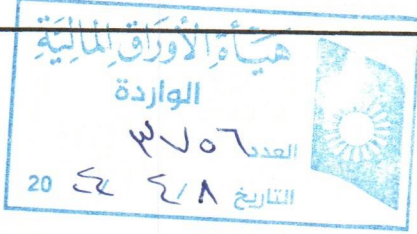 هيأة الأوراق المالية
الواردة
العدد ٣٧٥٦
التاريخ ٨ / ٤ ٢٤ 20